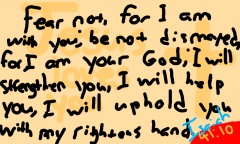 Fear not, for I am
with you; be not dismayed,
for I am your God; I will
strengthen you, I will help
you, I will uphold you
with my righteous hand
Isaiah
41:10